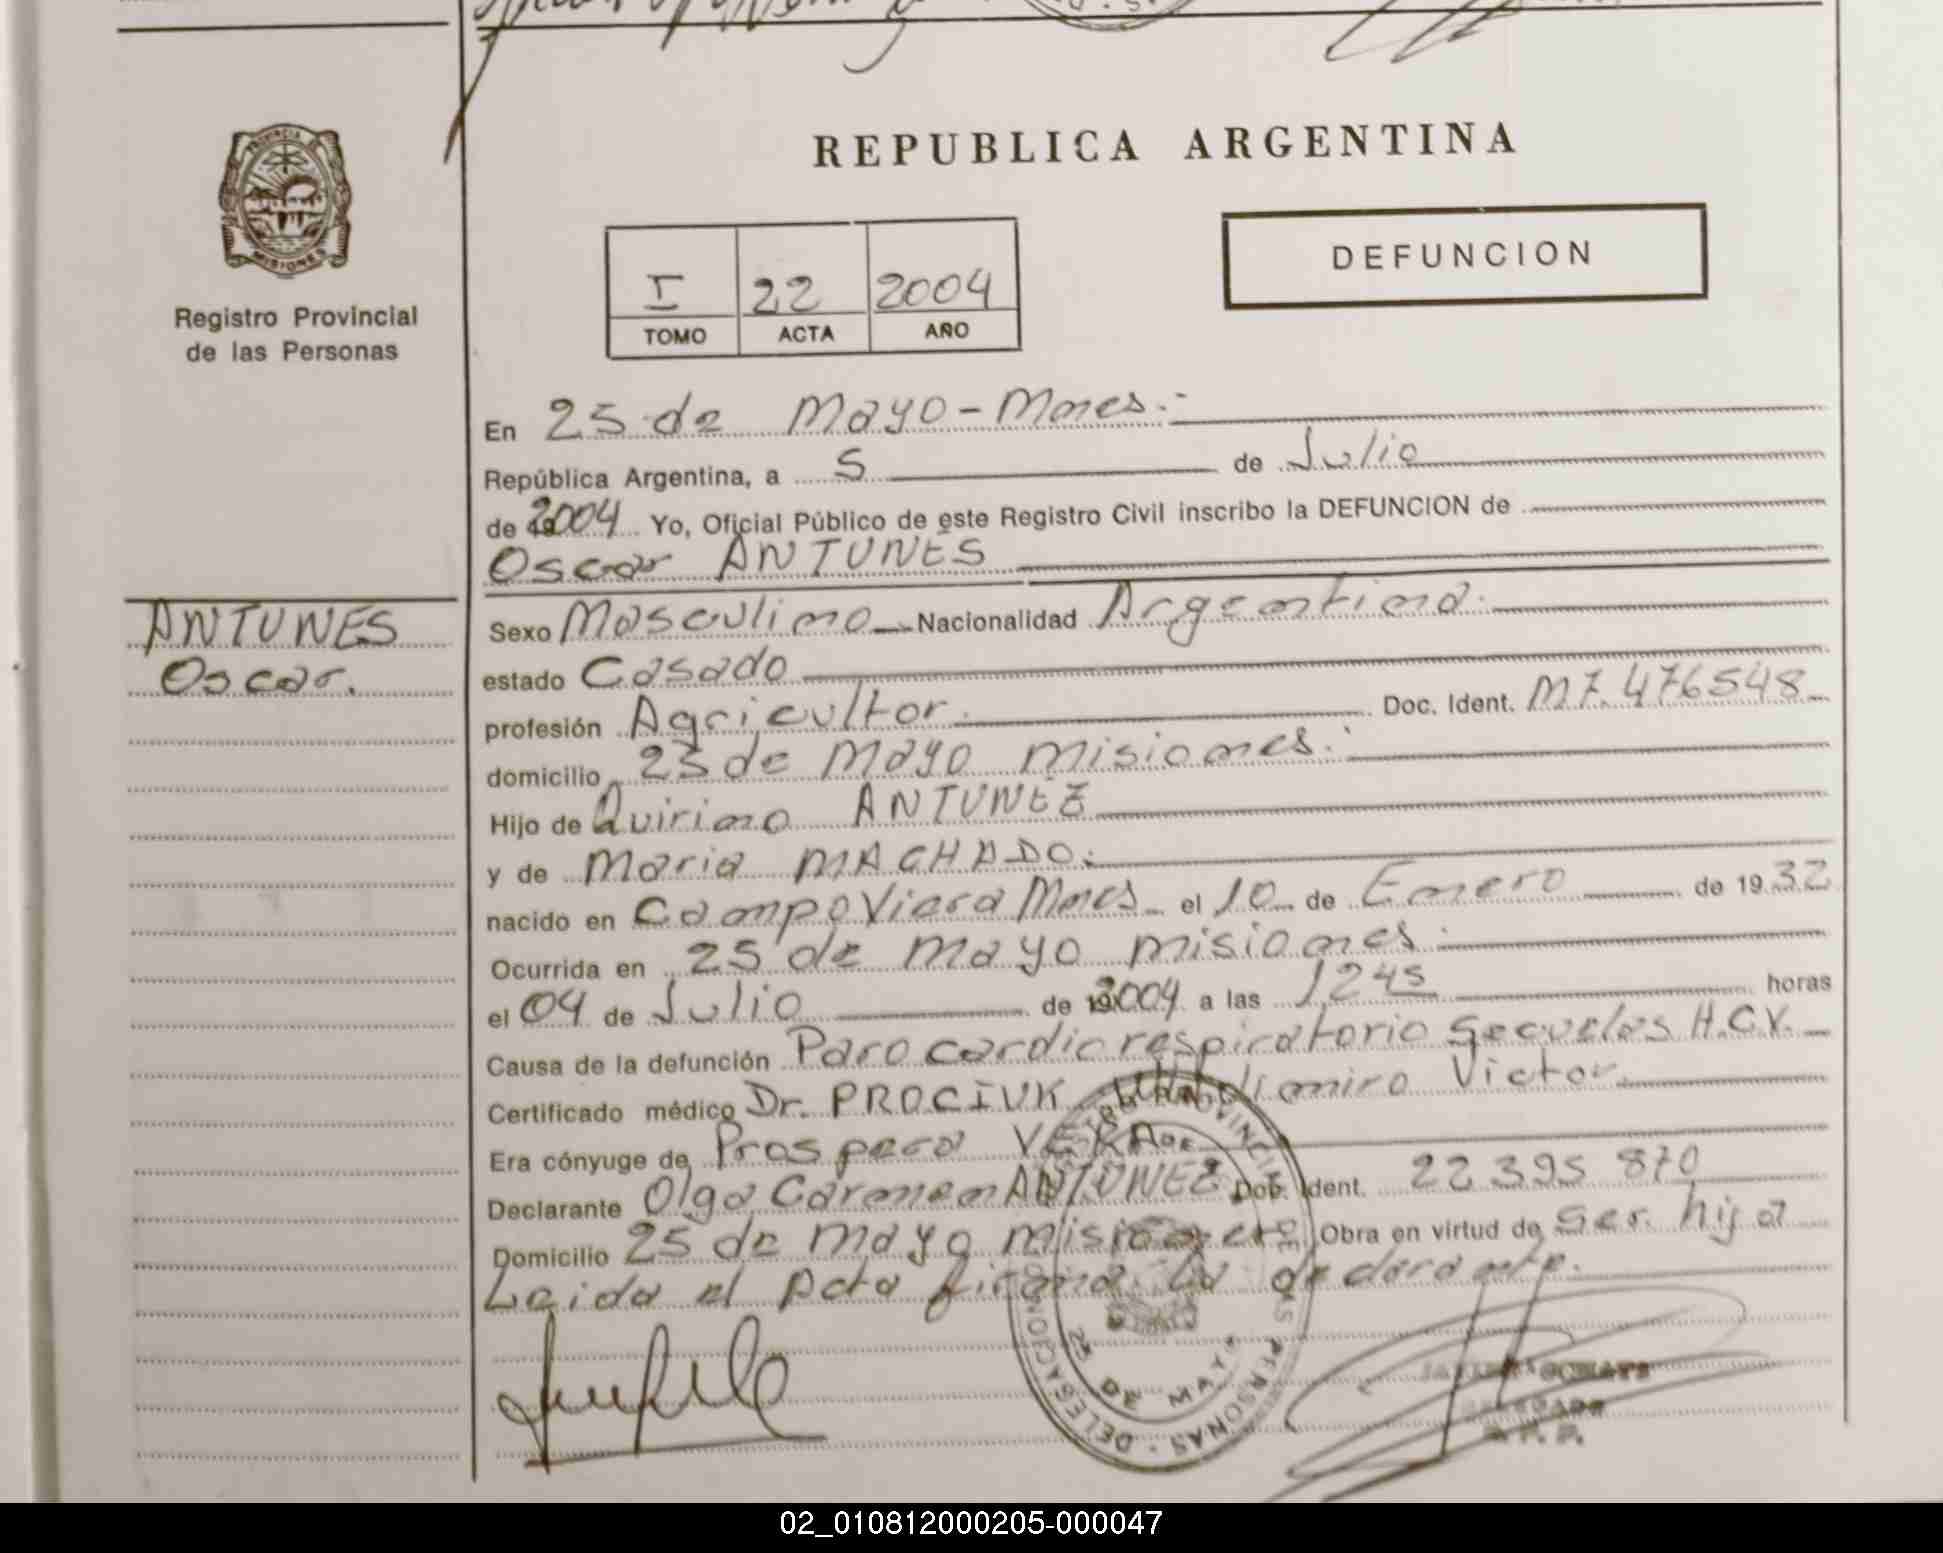 REPUBLICA ARGENTINA
PROVINCIA DE
MISIONES
Registro Provincial
de las Personas
I 22 2004
TOMO ACTA AÑO
DEFUNCION
En 25 de Mayo - Mnes.-
República Argentina, a 5 de Julio
de 2004 Yo, Oficial Público de este Registro Civil inscribo la DEFUNCION de
Oscar ANTUNES
ANTUNES
Oscar.
Sexo Masculino Nacionalidad Argentina.
estado Casado
profesión Agricultor. Doc. Ident. M7.476548
domicilio 25 de Mayo Misiones.
Hijo de Quirino ANTUNEZ
y de Maria MACHADO.
nacido en Campo Viera Mnes el 10 de Enero de 1932
Ocurrida en 25 de Mayo Misiones.
el 04 de Julio de 2004 a las 12 45 horas
Causa de la defunción Paro cardiorespiratorio Secuelas H.C.V.
Certificado médico Dr. PROCIUK Victor.
Era cónyuge de Prospera VERA
Declarante Olga Carmen ANTUNEZ. Doc. Ident. 22 395 870
Domicilio 25 de Mayo Misiones Obra en virtud de Ser hija
Leida el Acta firma la declarante.
DELEGACION
25 DE MAYO
DELEGADO
R. P. P.
02_010812000205-000047